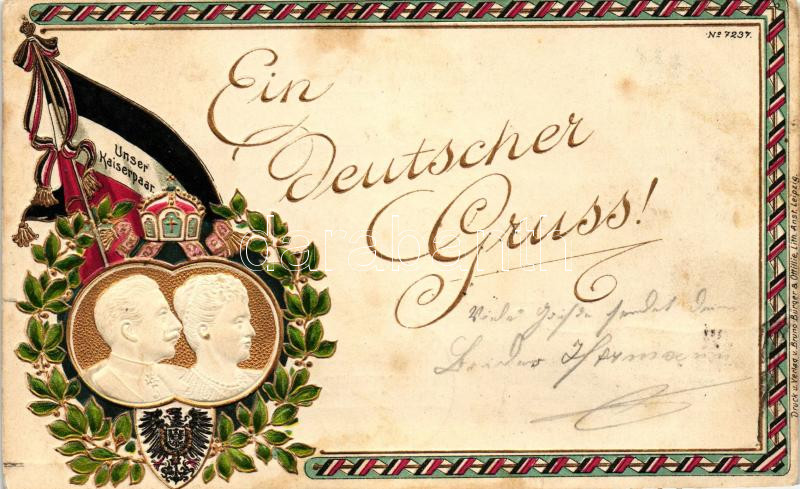 No 7237.
Ein
Deutscher
Gruss!
Unser
Kaiserpaar.
darabanth
Viele Grüße sendet dein
Bruder Hermann
Druck u. Verlag v. Bruno Bürger & Ottillie, Lith. Anst. Leipzig.